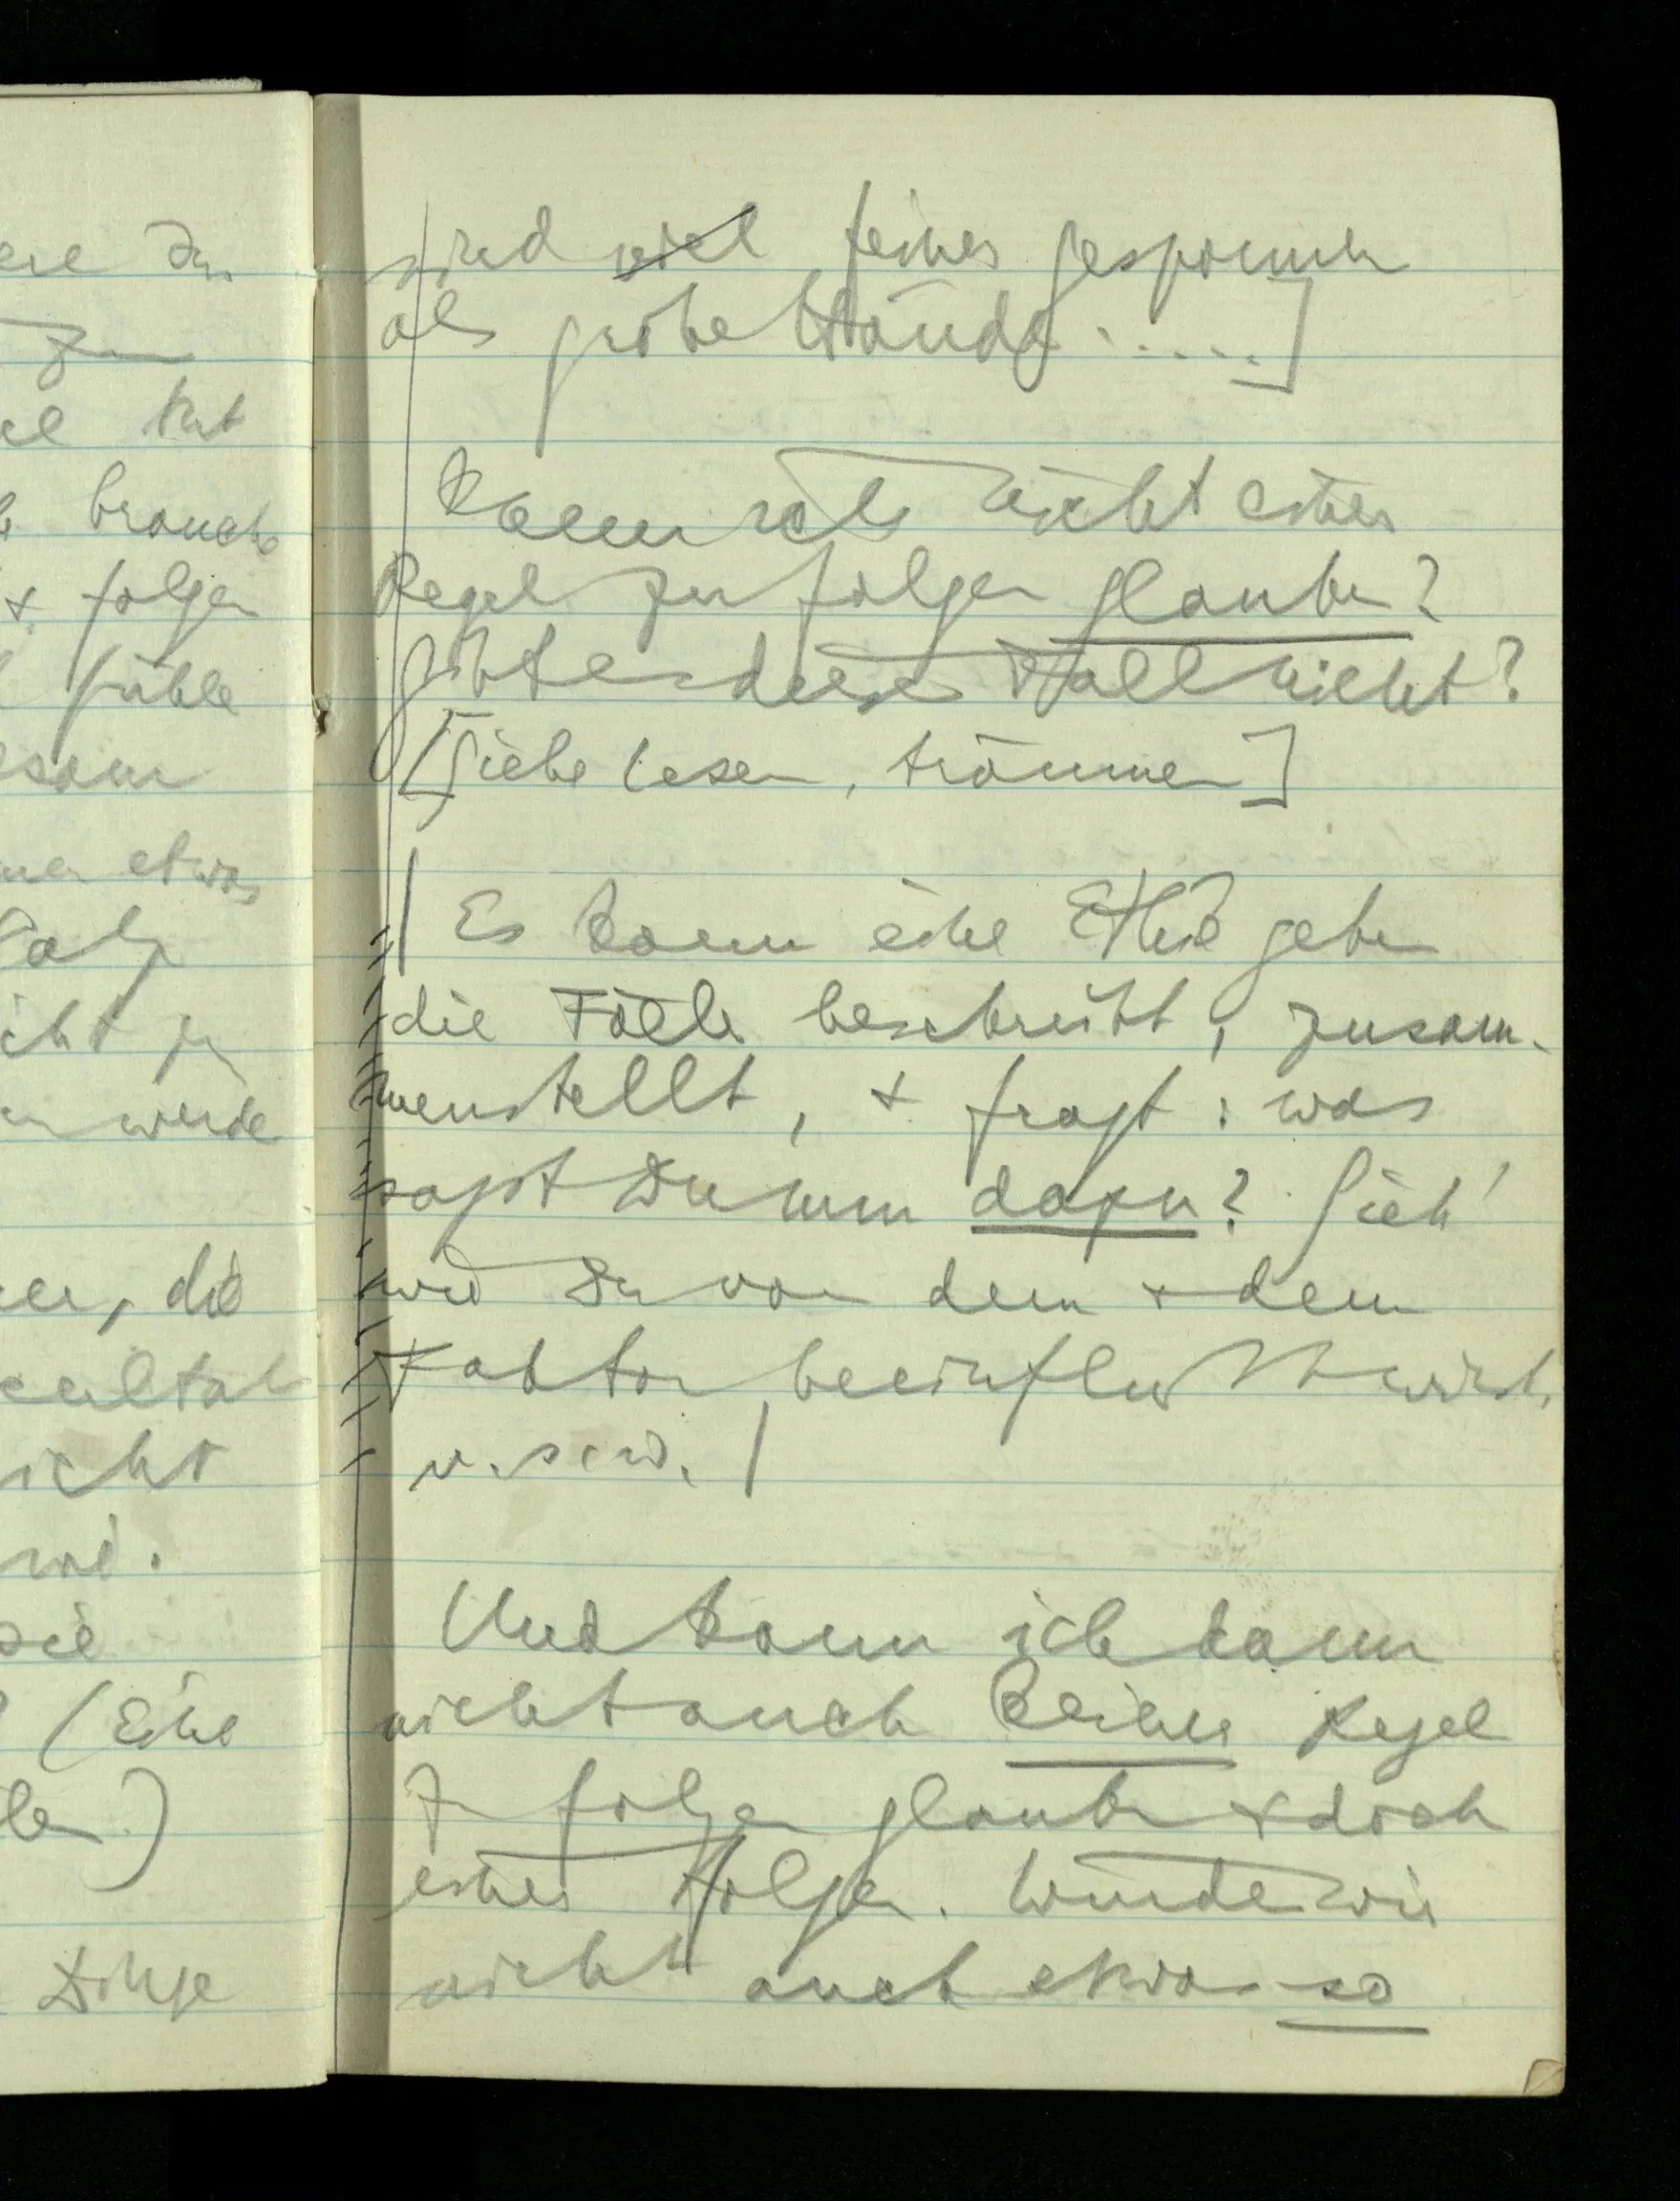 tut
brauche
& folgen
fühle
etwas
werde
die
(Eine
Dinge
sind viel feiner gesponnen
als grobe Hände . . . . .]
Kann ich nicht einer
Regel zu folgen glauben?
Gibt es diesen Fall nicht?
[Siehe lesen, träumen]
| Es kann eine Ethik geben
die Fälle beschreibt, zusam-
menstellt, & fragt: was
sagst Du nun dazu? Sieh'
wie Du von dem & dem
Faktor beeinflußt wirst,
u.s.w. |
Und kann ich dann
nicht auch keiner Regel
zu folgen glauben & doch
einer folgen. Würden wir
nicht auch etwas so